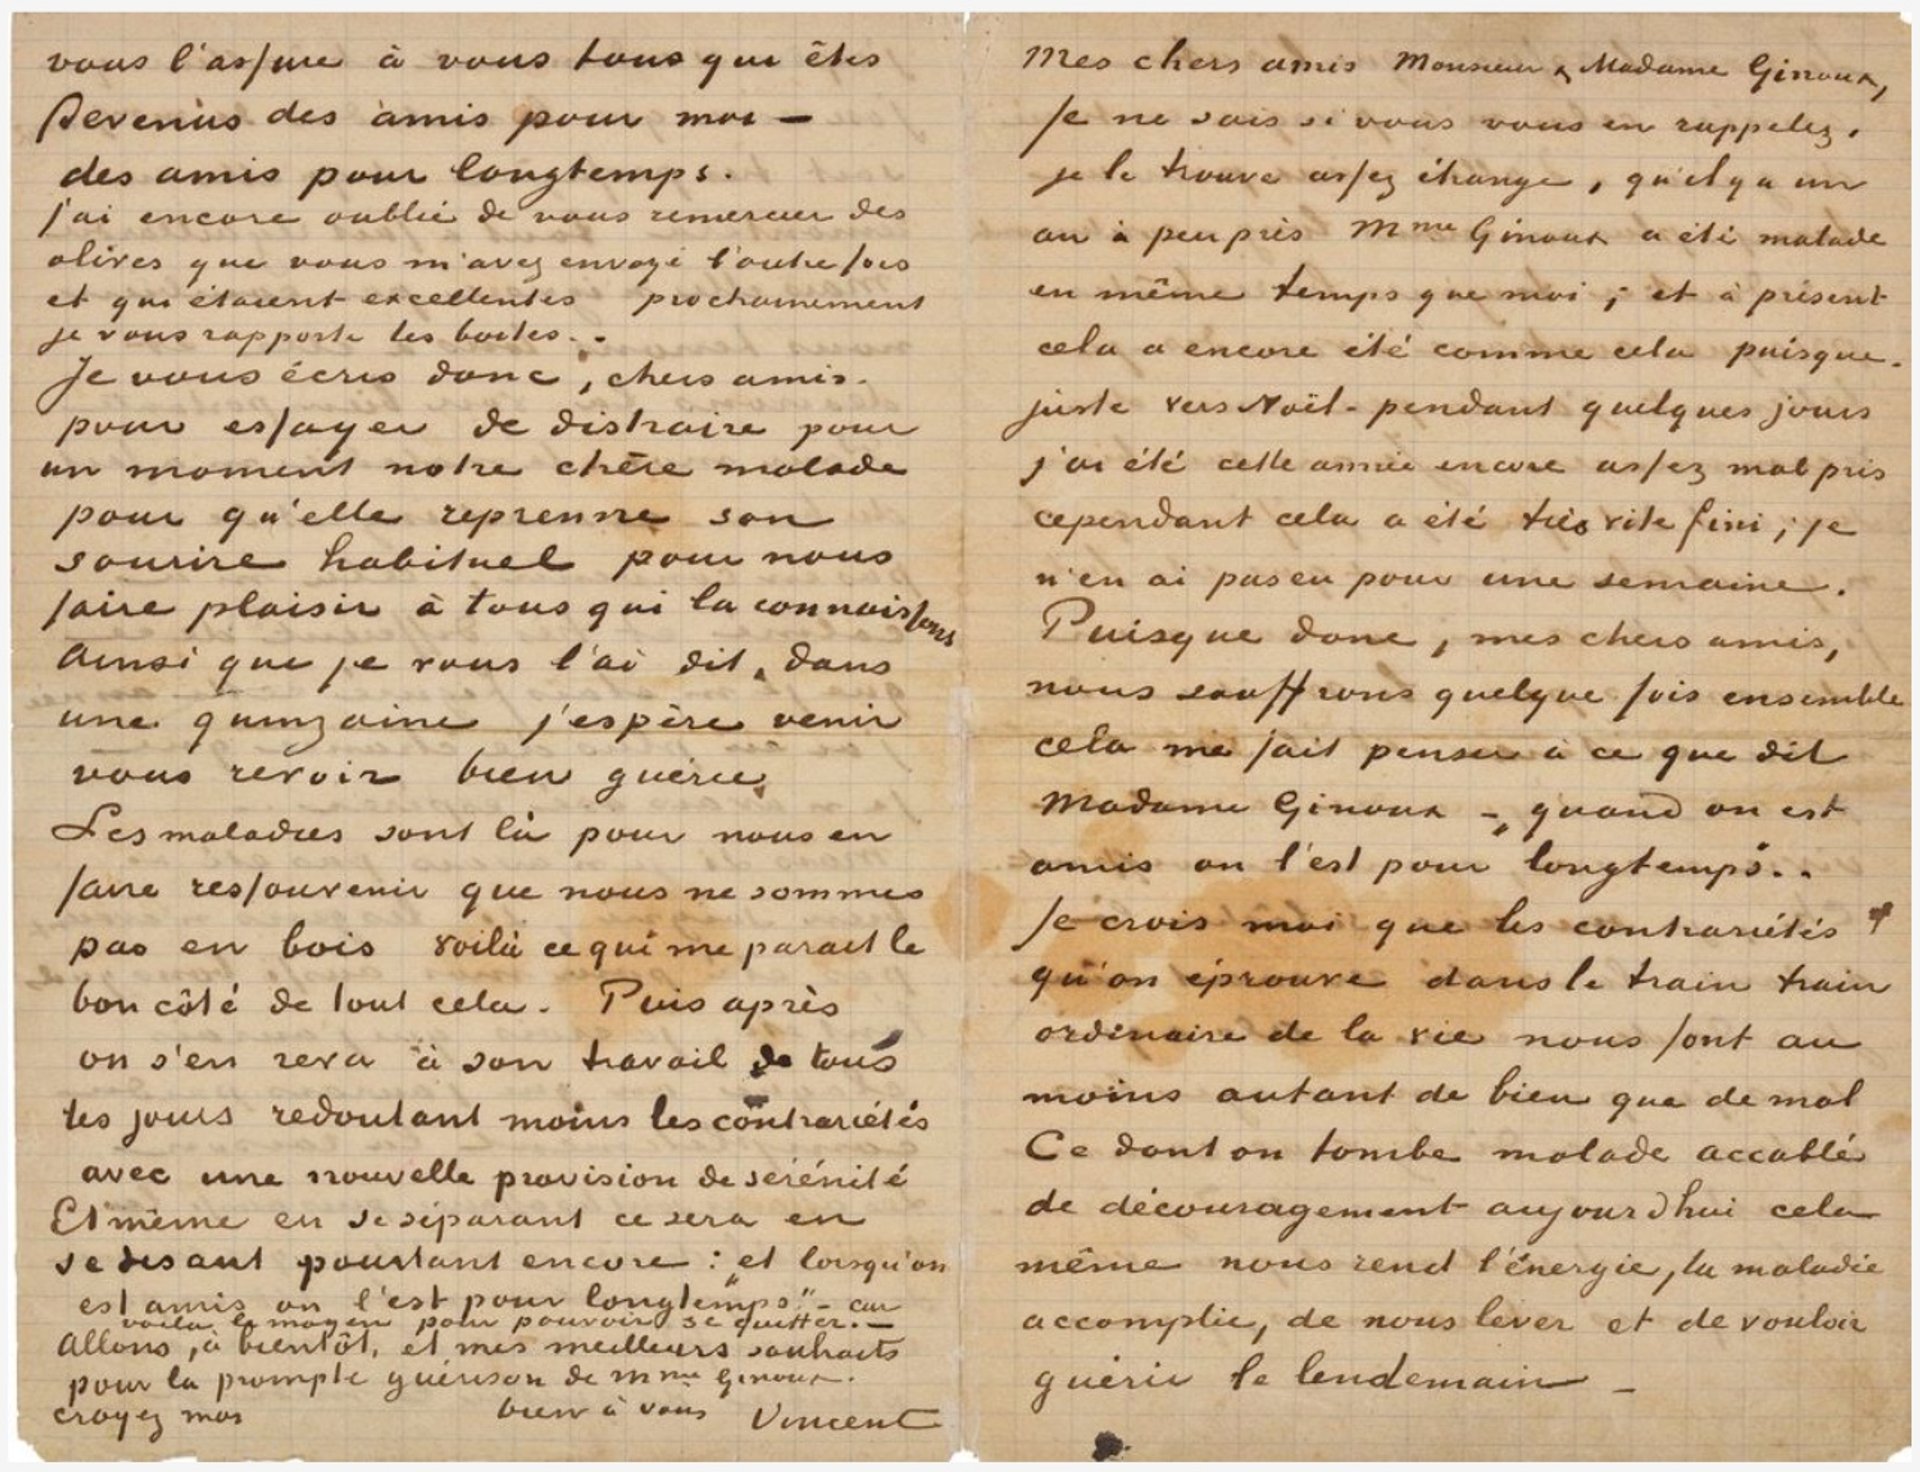 Mes chers amis Monsieur & Madame Ginoux,
Je ne sais si vous vous en rappelez,
je le trouve assez étrange, qu'il y a un
an à peu près Mme Ginoux a été malade
en même temps que moi ; et à présent
cela a encore été comme cela puisque -
juste vers Noël - pendant quelques jours
j'ai été cette année encore assez mal pris
cependant cela a été très vite fini ; je
n'en ai pas eu pour une semaine.
Puisque donc, mes chers amis,
nous souffrons quelque fois ensemble
cela me fait penser à ce que dit
Madame Ginoux -, quand on est
amis on l'est pour longtemps..
Je crois moi que les contrariétés
qu'on éprouve dans le train train
ordinaire de la vie nous font au
moins autant de bien que de mal
Ce dont on tombe malade accablé
de découragement aujourd'hui cela
même nous rend l'énergie, la maladie
accomplie, de nous lever et de vouloir
guérir le lendemain -
vous l'assure à vous tous qui êtes
devenus des amis pour moi -
des amis pour longtemps.
j'ai encore oublié de vous remercier des
olives que vous m'avez envoyé l'autre fois
et qui étaient excellentes prochainement
je vous rapporte les boites..
Je vous écris donc, chers amis.
pour essayer de distraire pour
un moment notre chère malade
pour qu'elle reprenne son
sourire habituel pour nous
faire plaisir à tous qui la connaissons
Ainsi que je vous l'ai dit, dans
une quinzaine j'espère venir
vous revoir bien guérie,
Les maladies sont là pour nous en
faire ressouvenir que nous ne sommes
pas en bois voilà ce qui me parait le
bon côté de tout cela. Puis après
on s'en reva à son travail de tous
les jours redoutant moins les contrariétés
avec une nouvelle provision de sérénité
Et même en se séparant ce sera en
se disant pourtant encore : "et lorsqu'on
est amis on l'est pour longtemps" - car
voila le moyen pour pouvoir se quitter. -
Allons, à bientôt, et mes meilleurs souhaits
pour la prompte guérison de mme Ginoux.
croyez moi bien à vous Vincent